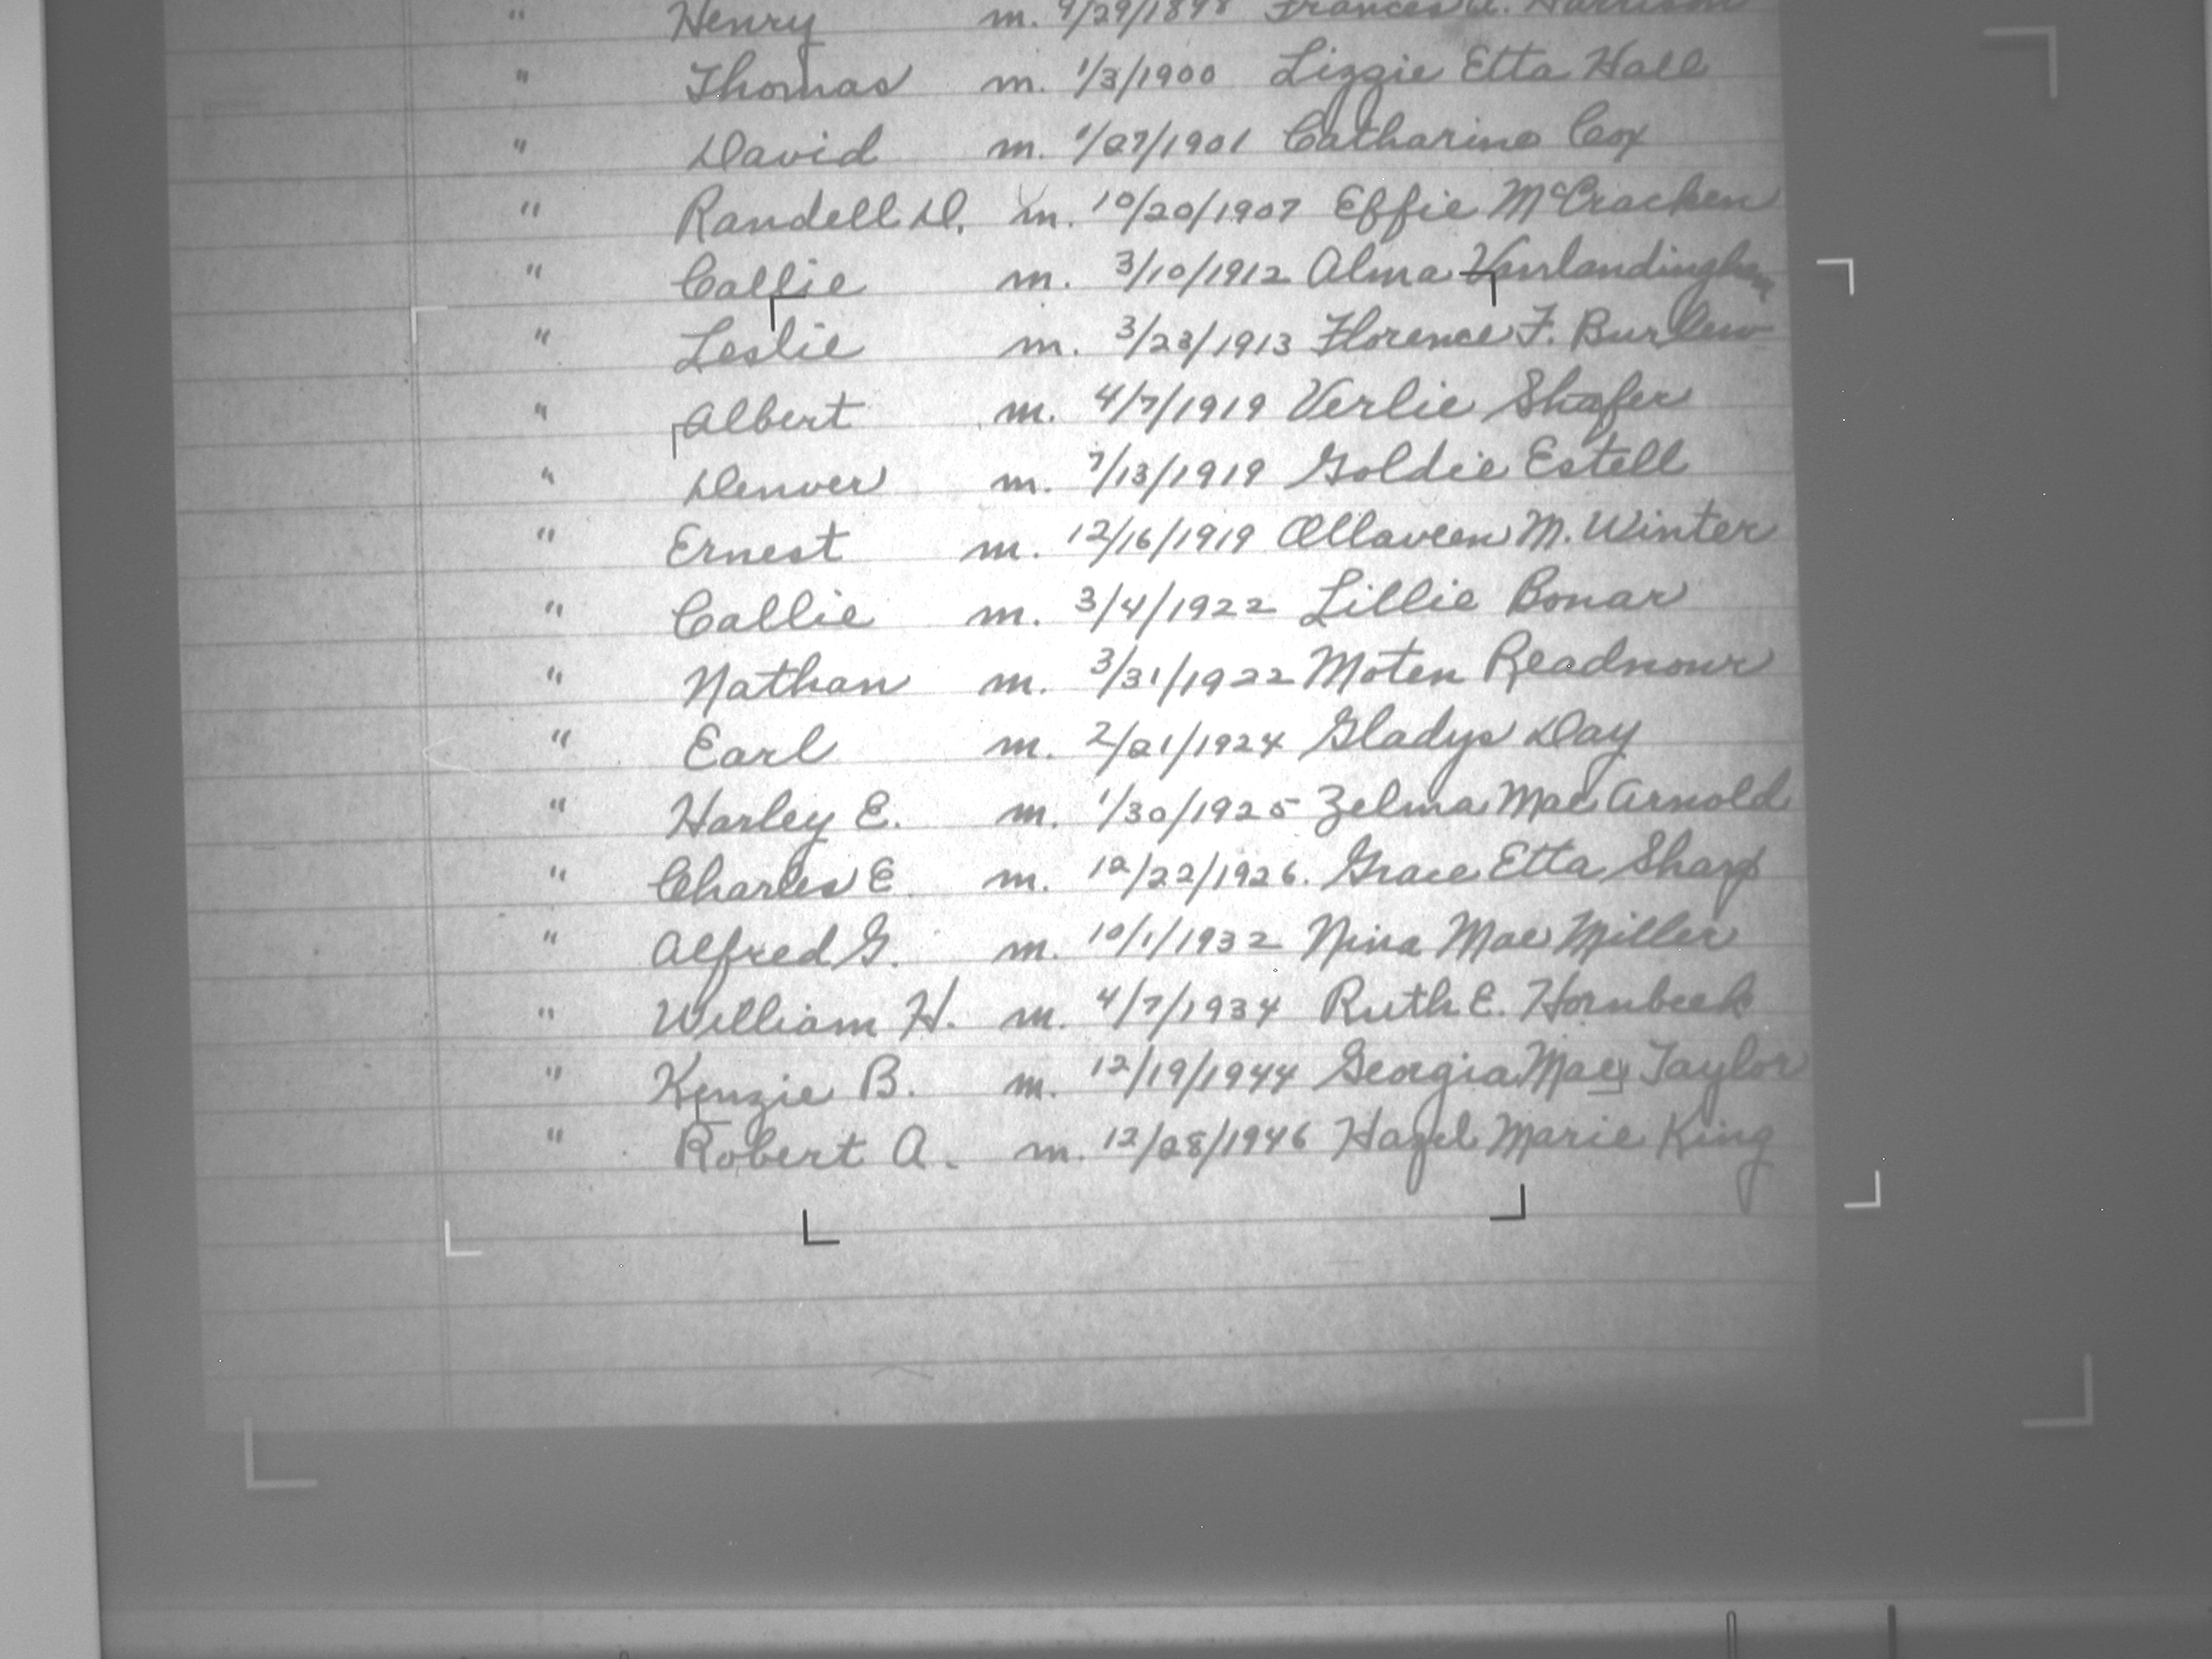 " Henry m. 9/29/1898 Frances A. Harrison
" Thomas m. 1/3/1900 Lizzie Etta Hall
" David m. 1/27/1901 Catharine Cox
" Randell D. m. 10/20/1907 Effie McCracken
" Callie m. 3/10/1912 Alma Vanlandingham
" Leslie m. 3/23/1913 Florence F. Burlew
" Albert m. 4/7/1919 Verlie Shafer
" Denver m. 7/13/1919 Goldie Estell
" Ernest m. 12/16/1919 Ollaveen M. Winter
" Callie m. 3/4/1922 Lillie Bonar
" Nathan m. 3/31/1922 Moten Readnour
" Earl m. 2/21/1924 Gladys Day
" Harley E. m. 1/30/1925 Zelma Mae Arnold
" Charles E. m. 12/22/1926. Grace Etta Sharp
" Alfred G. m. 10/1/1932 Nina Mae Miller
" William H. m. 4/7/1934 Ruth E. Hornbeek
" Kenzie B. m. 12/19/1944 Georgia Mae Taylor
" Robert A. m. 12/28/1946 Hazel Marie King